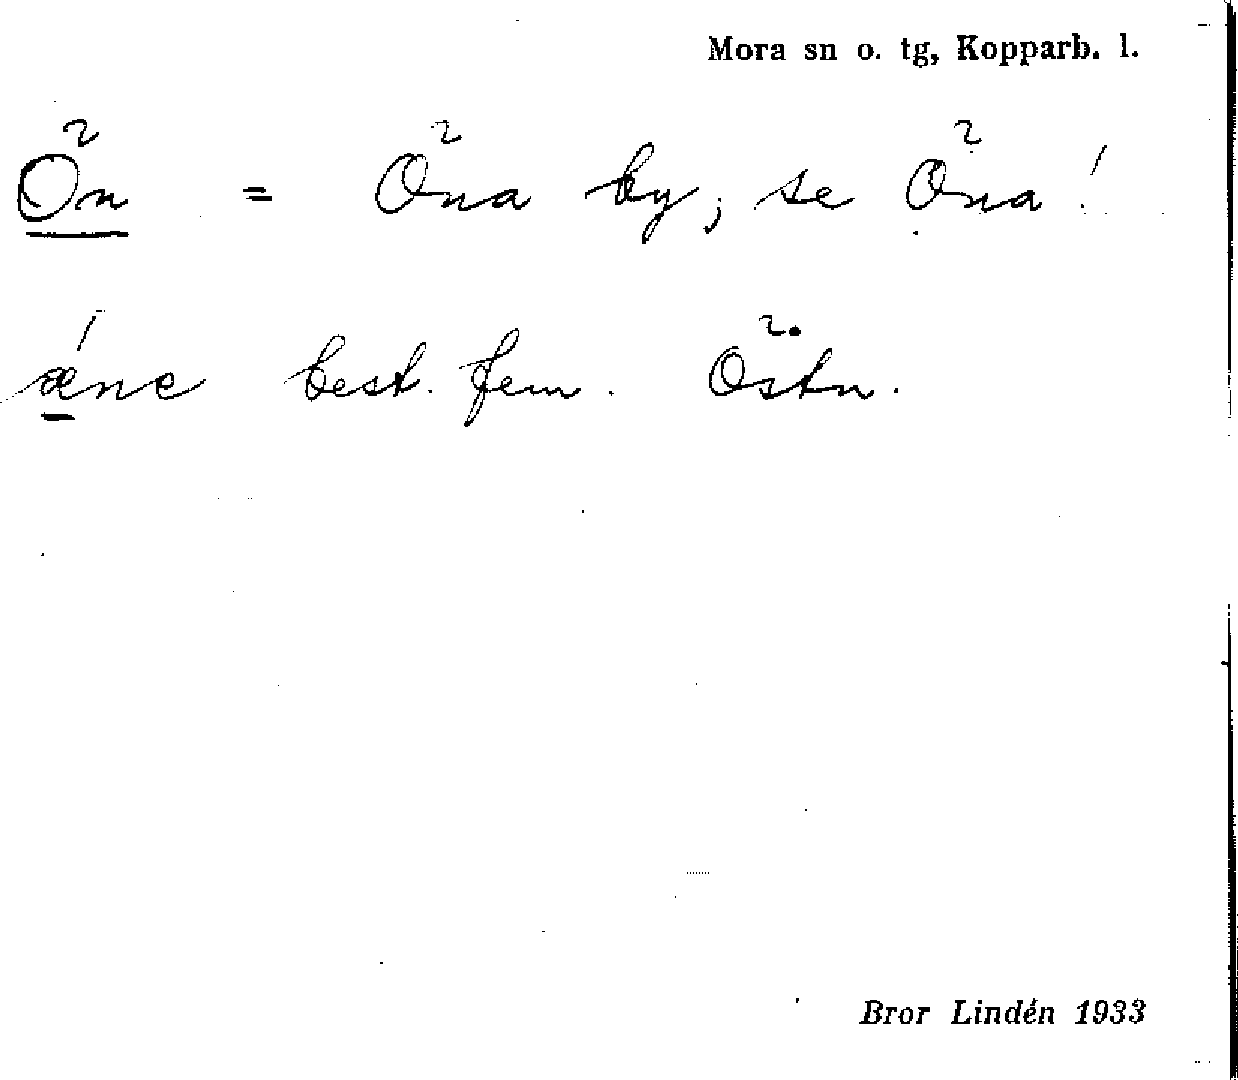 Mora sn o. tg, Kopparb. l.
Ön = Öna by; se Öna!
ǽne best. fem. Östn.
Bror Lindén 1933